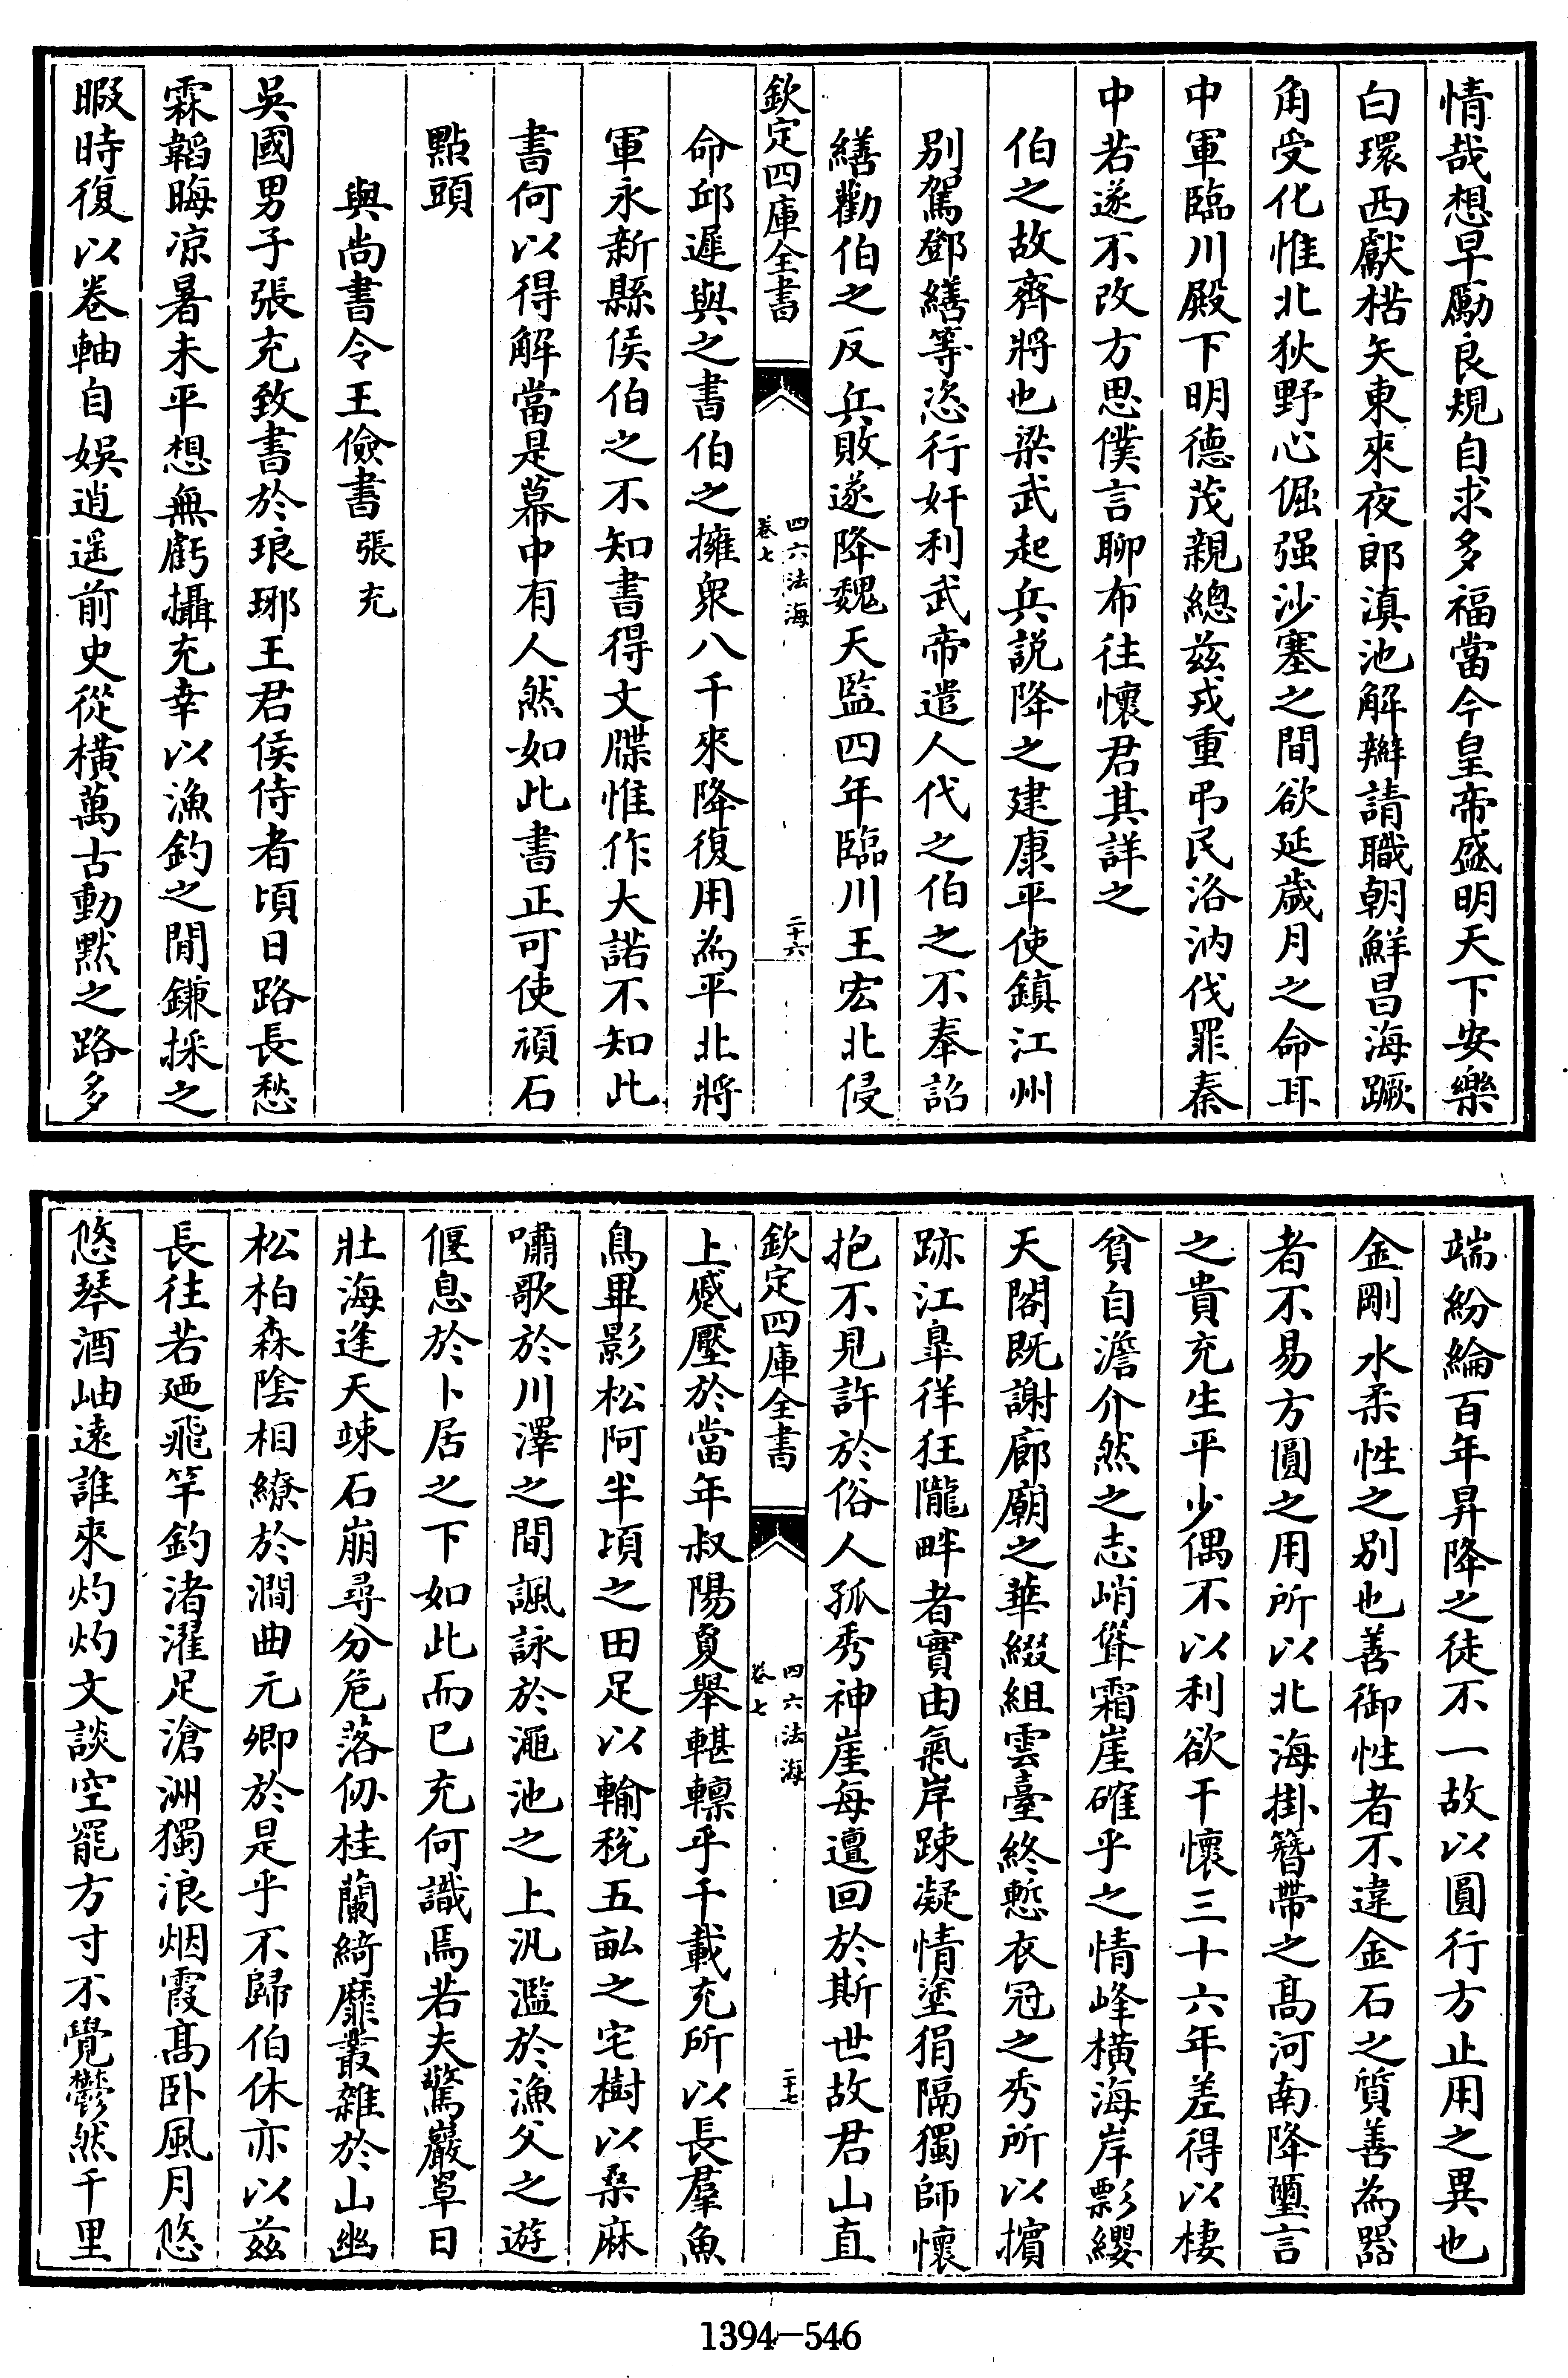 情哉想早勵良規自求多福當今皇帝盛明天下安樂
白環西獻楛矢東來夜郎滇池解辮請職朝鮮昌海蹶
角受化惟北狄野心倔强沙塞之間欲延歲月之命耳
中軍臨川殿下明德茂親總兹戎重弔民洛汭伐罪秦
中若遂不改方思僕言聊布往懷君其詳之
伯之故齊將也梁武起兵説降之建康平使鎮江州
别駕鄧繕等恣行奸利武帝遣人代之伯之不奉詔
繕勸伯之反兵敗遂降魏天監四年臨川王宏北侵
欽定四庫全書
四六法海
卷七
二十六
命邱遲與之書伯之擁衆八千來降復用為平北將
軍永新縣侯伯之不知書得文牒惟作大諾不知此
書何以得解當是幕中有人然如此書正可使頑石
點頭
與尚書令王儉書 張充
吳國男子張充致書於琅琊王君侯侍者頃日路長愁
霖韜晦凉暑未平想無虧攝充幸以漁釣之閒鎌採之
暇時復以卷軸自娛逍遥前史從橫萬古動默之路多
端紛綸百年昇降之徒不一故以圓行方止用之異也
金剛水柔性之别也善御性者不違金石之質善為器
者不易方圓之用所以北海掛簪帶之髙河南降璽言
之貴充生平少偶不以利欲干懷三十六年差得以棲
貧自澹介然之志峭聳霜崖確乎之情峰橫海岸彯纓
天閣既謝廊廟之華綴組雲臺終慙衣冠之秀所以擯
跡江臯徉狂隴畔者實由氣岸疎凝情塗狷隔獨師懷
抱不見許於俗人孤秀神崖每邅回於斯世故君山直
欽定四庫全書
四六法海
卷七
二十七
上蹙壓於當年叔陽敻舉轗轗乎千載充所以長羣魚
鳥畢影松阿半頃之田足以輸税五畝之宅樹以桑麻
嘯歌於川澤之間諷詠於澠池之上汎濫於漁父之遊
偃息於卜居之下如此而已充何識焉若夫驚巖罩日
壯海逢天竦石崩尋分危落仭桂蘭綺靡叢雜於山幽
松柏森陰相繚於澗曲元卿於是乎不歸伯休亦以兹
長往若廼飛竿釣渚濯足滄洲獨浪烟霞髙卧風月悠
悠琴酒岫遠誰來灼灼文談空罷方寸不覺鬱然千里
1394—546